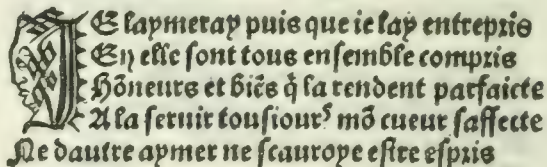 IE laymeray puis que ie lay entrepris
En elle sont tous ensemble compris
Hõneurs et biẽs q̃ la rendent parfaicte
A la seruir tousiours mõ cueur saffecte
Ne dautre aymer ne scauroye estre espris